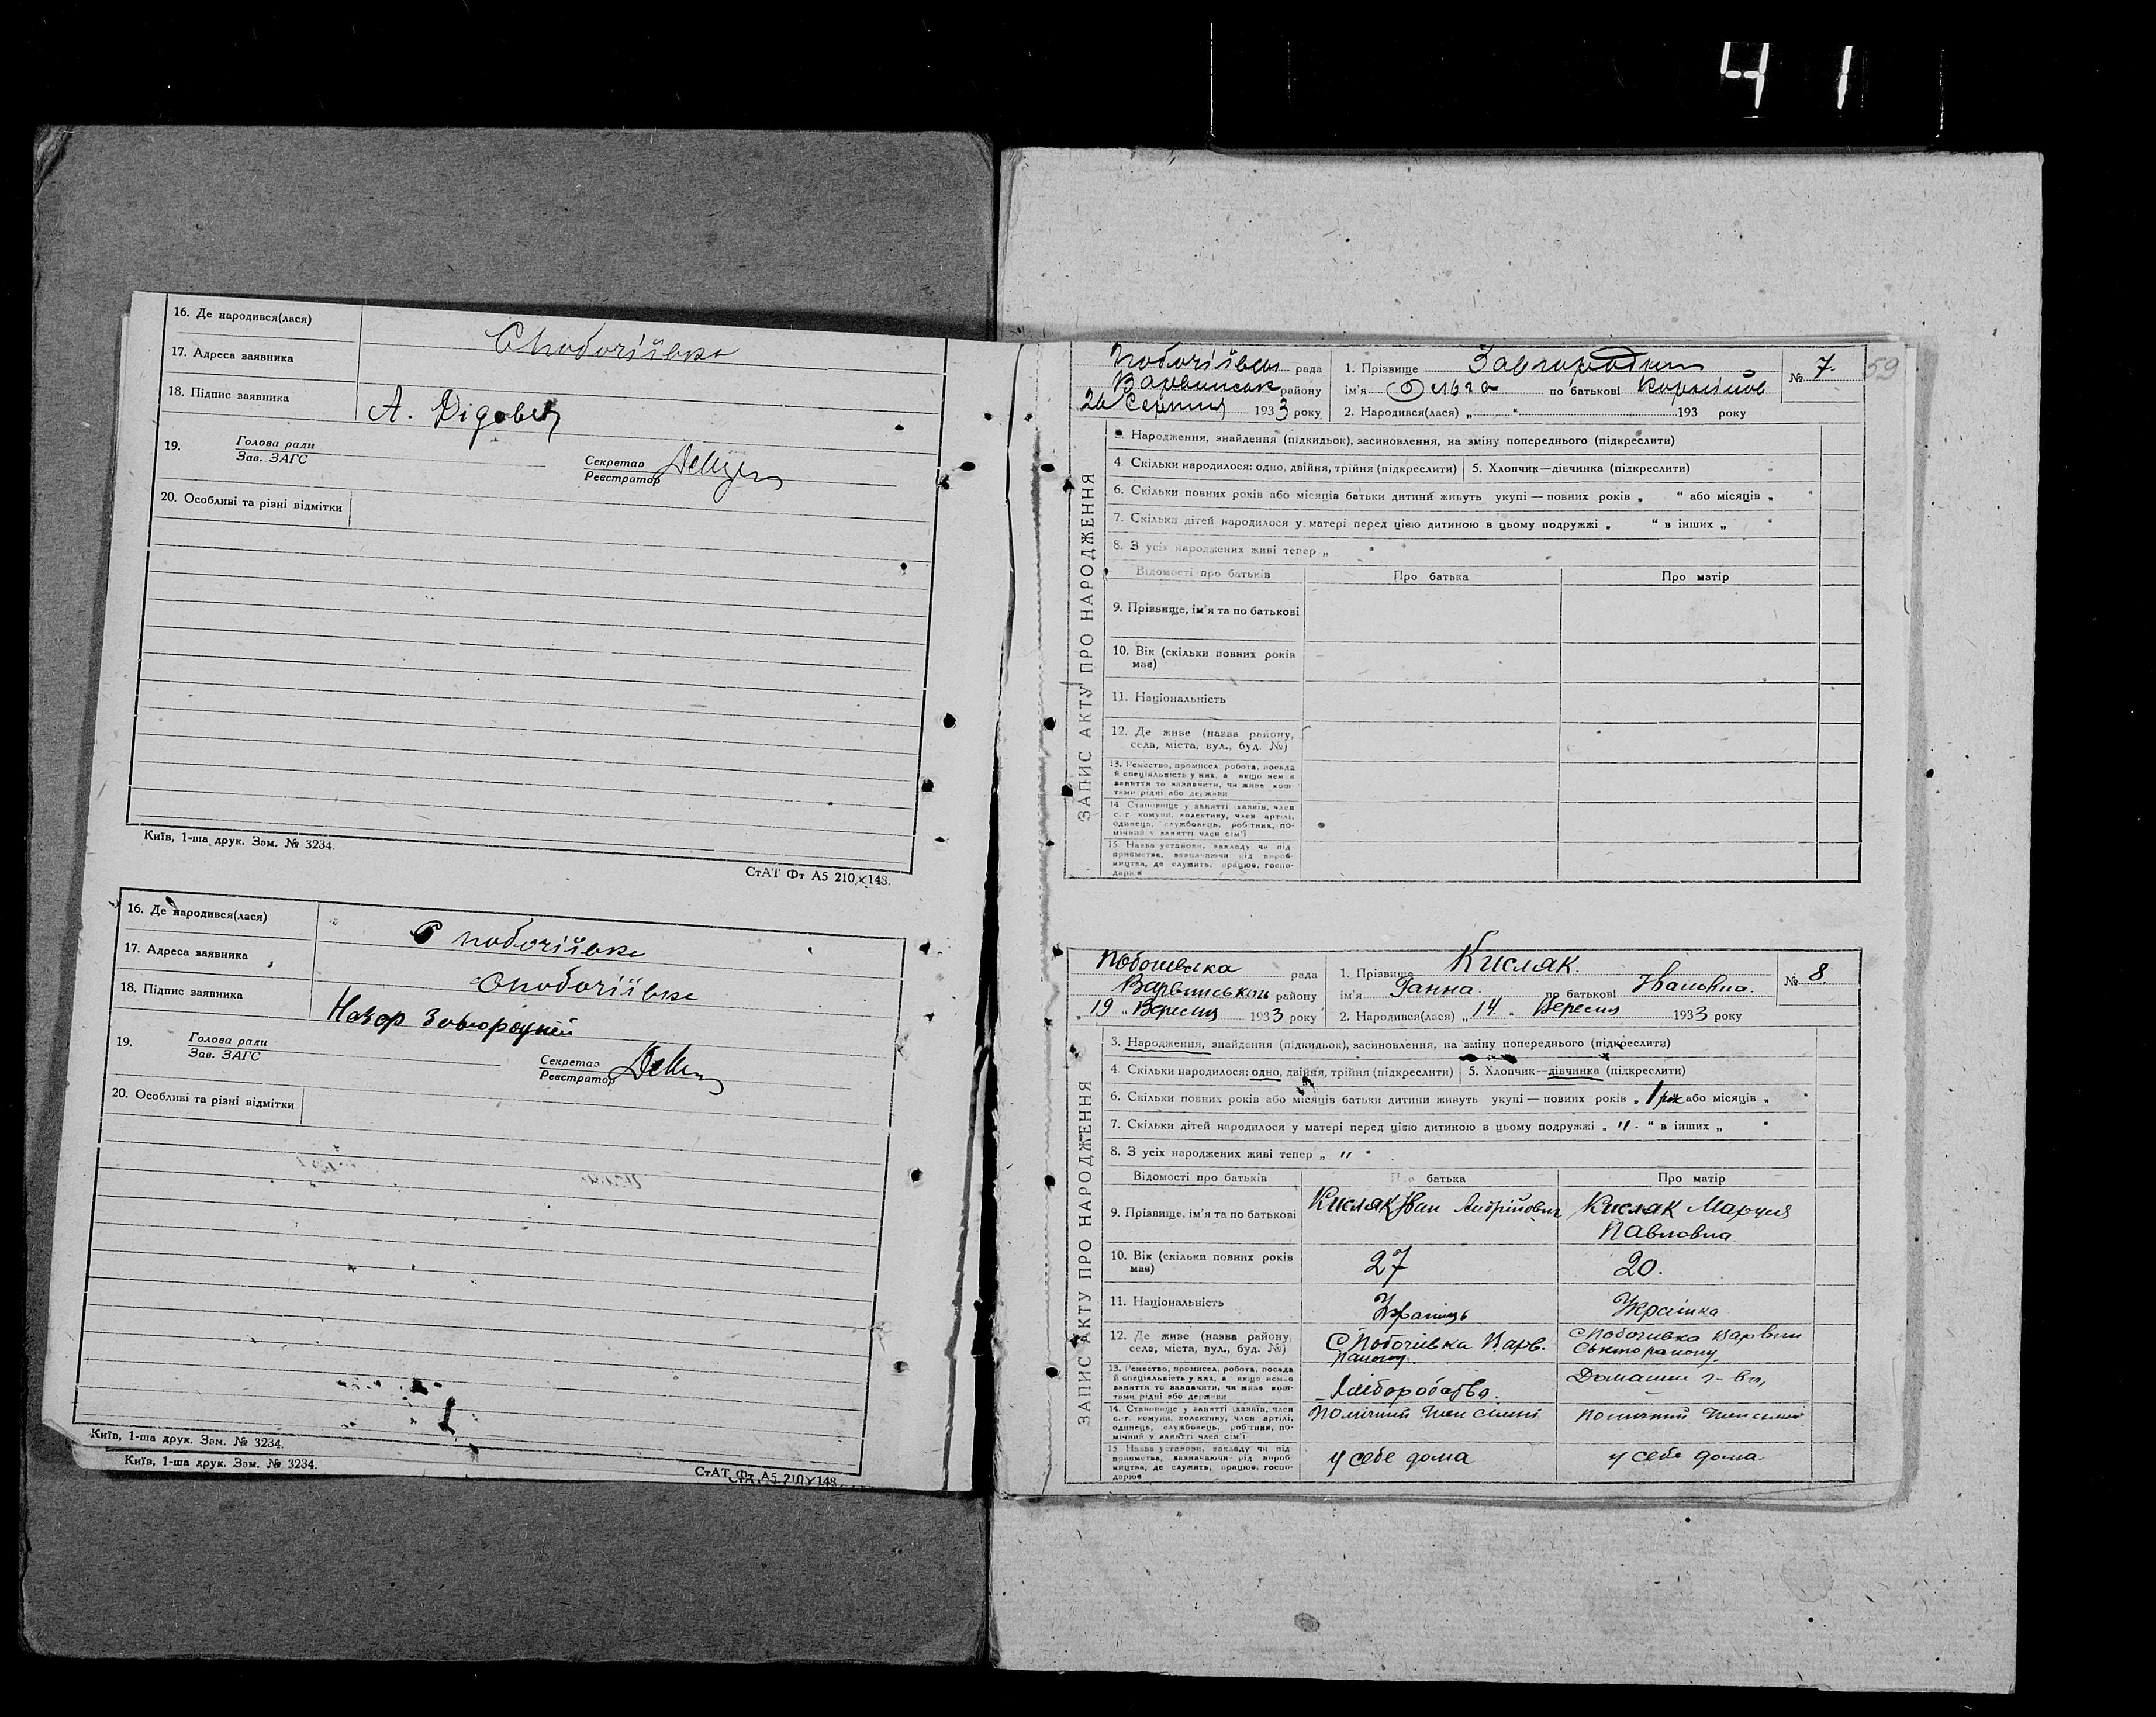 41
16. Де народився(лася)
17. Адреса заявника
С Побочіївка
18. Підпис заявника
А. Дідовец
19. Голова ради
Зав. ЗАГС
Секретар
Реєстратор
20. Особливі та різні відмітки
Київ, 1-ша друк. Зам. № 3234.
СтАТ Фт А5 210×148.
16. Де народився(лася)
С Побочіївка
17. Адреса заявника
С Побочіївка
18. Підпис заявника
Назар Завгородній
19. Голова ради
Зав. ЗАГС
Секретар
Реєстратор
20. Особливі та різні відмітки
Київ, 1-ша друк. Зам. № 3234.
СтАТ Фт А5 210×148
Київ, 1-ша друк. Зам. № 3234.
59
ЗАПИС АКТУ ПРО НАРОДЖЕННЯ
рада
району
26 Серпня 1933 року
1. Прізвище
№ 7.
ім'я Ольга по батькові
2. Народився(лася) „ " 193 року
3. Народження, знайдення (підкидьок), засиновлення, на зміну попереднього (підкреслити)
4. Скільки народилося: одно, двійня, трійня (підкреслити) 5. Хлопчик—дівчинка (підкреслити)
6. Скільки повних років або місяців батьки дитини живуть укупі — повних років „ " або місяців „ "
7. Скільки дітей народилося у матері перед цією дитиною в цьому подружжі „ " в інших „ "
8. З усіх народжених живі тепер „ "
Відомості про батьків Про батька Про матір
9. Прізвище, ім'я та по батькові
10. Вік (скільки повних років має)
11. Національність
12. Де живе (назва району, села, міста, вул., буд. №)
13. Ремество, промисел, робота, посада й спеціяльність у них, а якщо немає заняття то зазначити, чи живе коштами рідні або держави
14. Становище у занятті (хазяїн, член с.-г. комуни, колективу, член артілі, одинець, службовець, робітник, помічний у занятті член сім'ї
15. Назва установи, закладу чи підприємства, зазначаючи рід виробництва, де служить, працює, господарює
ЗАПИС АКТУ ПРО НАРОДЖЕННЯ
рада
Варвинського району
„ 19 „ Вересня 1933 року
1. Прізвище Кисляк.
№ 8.
ім'я Ганна. по батькові Івановна.
2. Народився(лася) „ 14 „ Вересня 1933 року
3. Народження, знайдення (підкидьок), засиновлення, на зміну попереднього (підкреслити)
4. Скільки народилося: одно, двійня, трійня (підкреслити) 5. Хлопчик—дівчинка (підкреслити)
6. Скільки повних років або місяців батьки дитини живуть укупі — повних років „ 1 рік або місяців „ "
7. Скільки дітей народилося у матері перед цією дитиною в цьому подружжі „ " " в інших „ "
8. З усіх народжених живі тепер „ " "
Відомості про батьків Про батька Про матір
9. Прізвище, ім'я та по батькові Кисляк Іван Андрійович Кисляк Павловна
10. Вік (скільки повних років має) 27 20.
11. Національність Українка
12. Де живе (назва району, села, міста, вул., буд. №) С Побочіївка Варв. району С Побочівка Варвинського району
13. Ремество, промисел, робота, посада й спеціяльність у них, а якщо немає заняття то зазначити, чи живе коштами рідні або держави Хліборобство. Домашнє г-во,
14. Становище у занятті (хазяїн, член с.-г. комуни, колективу, член артілі, одинець, службовець, робітник, помічний у занятті член сім'ї помічний член сімї помічний член сімї
15. Назва установи, закладу чи підприємства, зазначаючи рід виробництва, де служить, працює, господарює у себе дома у себе дома.